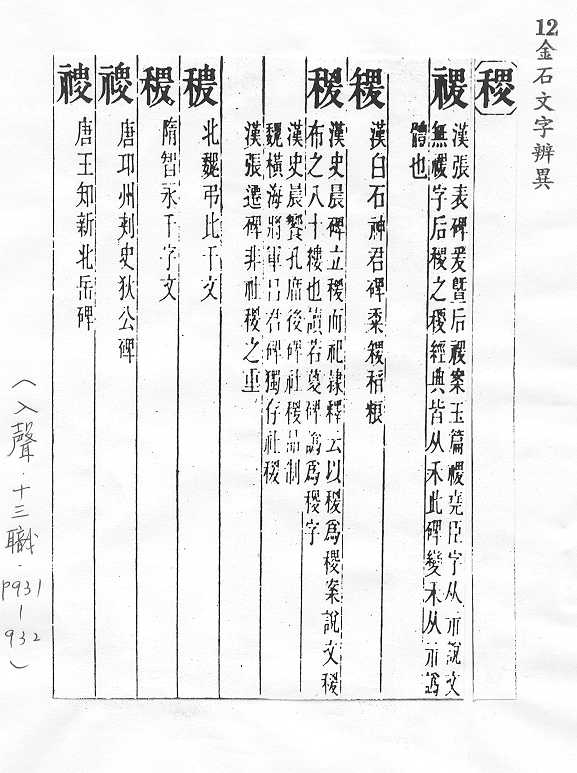 12金石文字辨異
〔稷〕
禝 漢張表碑爰曁后禝案玉篇禝堯臣字从示說文
無禝字后稷之稷經典皆从禾此碑變禾从示爲
體也
漢白石神君碑黍稷稻粮
稯 漢史晨碑立稯而祀隸釋云以稯爲稷案說文稯
布之八十縷也讀若㚇碑譌爲稷字
漢史晨饗孔廟後碑社稯品制
魏橫海將軍呂君碑獨存社稯
漢張遷碑非社稯之重
北魏弔比干文
隋智永千字文
唐邛州刺史狄公碑
唐王知新北岳碑
（入聲．十三職．P931－932）